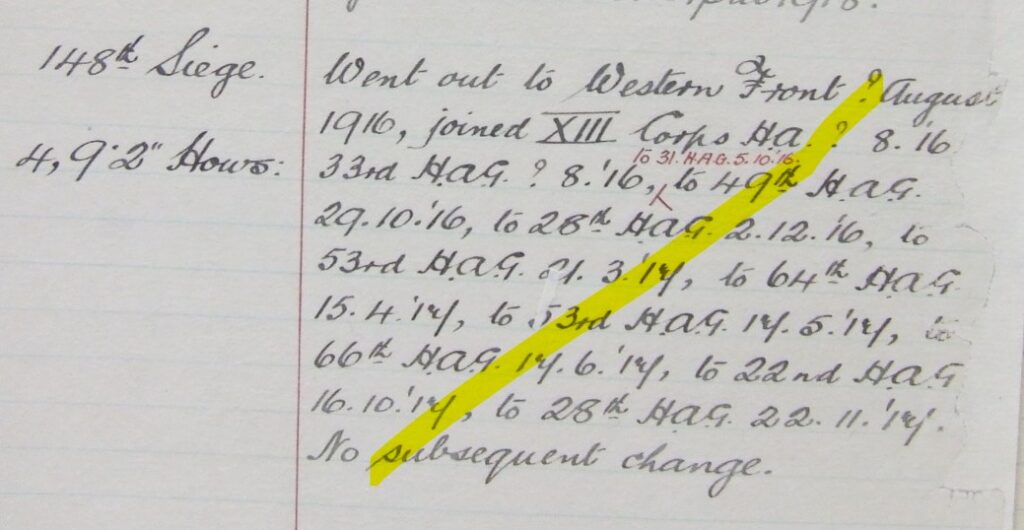 148th Siege.
4, 9·2" Hows:
Went out to Western Front ? August
1916, joined XIII Corps HA. ? 8.'16
to 31. H.A.G. 5.10.'16.
33rd H.A.G. ? 8.'16, to 49th H.A.G.
29.10.'16, to 28th H.A.G. 2.12.'16, to
53rd H.A.G. 21.3.'17, to 64th H.A.G.
15.4.'17, to 53rd H.A.G. 17.5.'17, to
66th H.A.G. 17.6.'17, to 22nd H.A.G
16.10.'17, to 28th H.A.G. 22.11.'17.
No subsequent change.